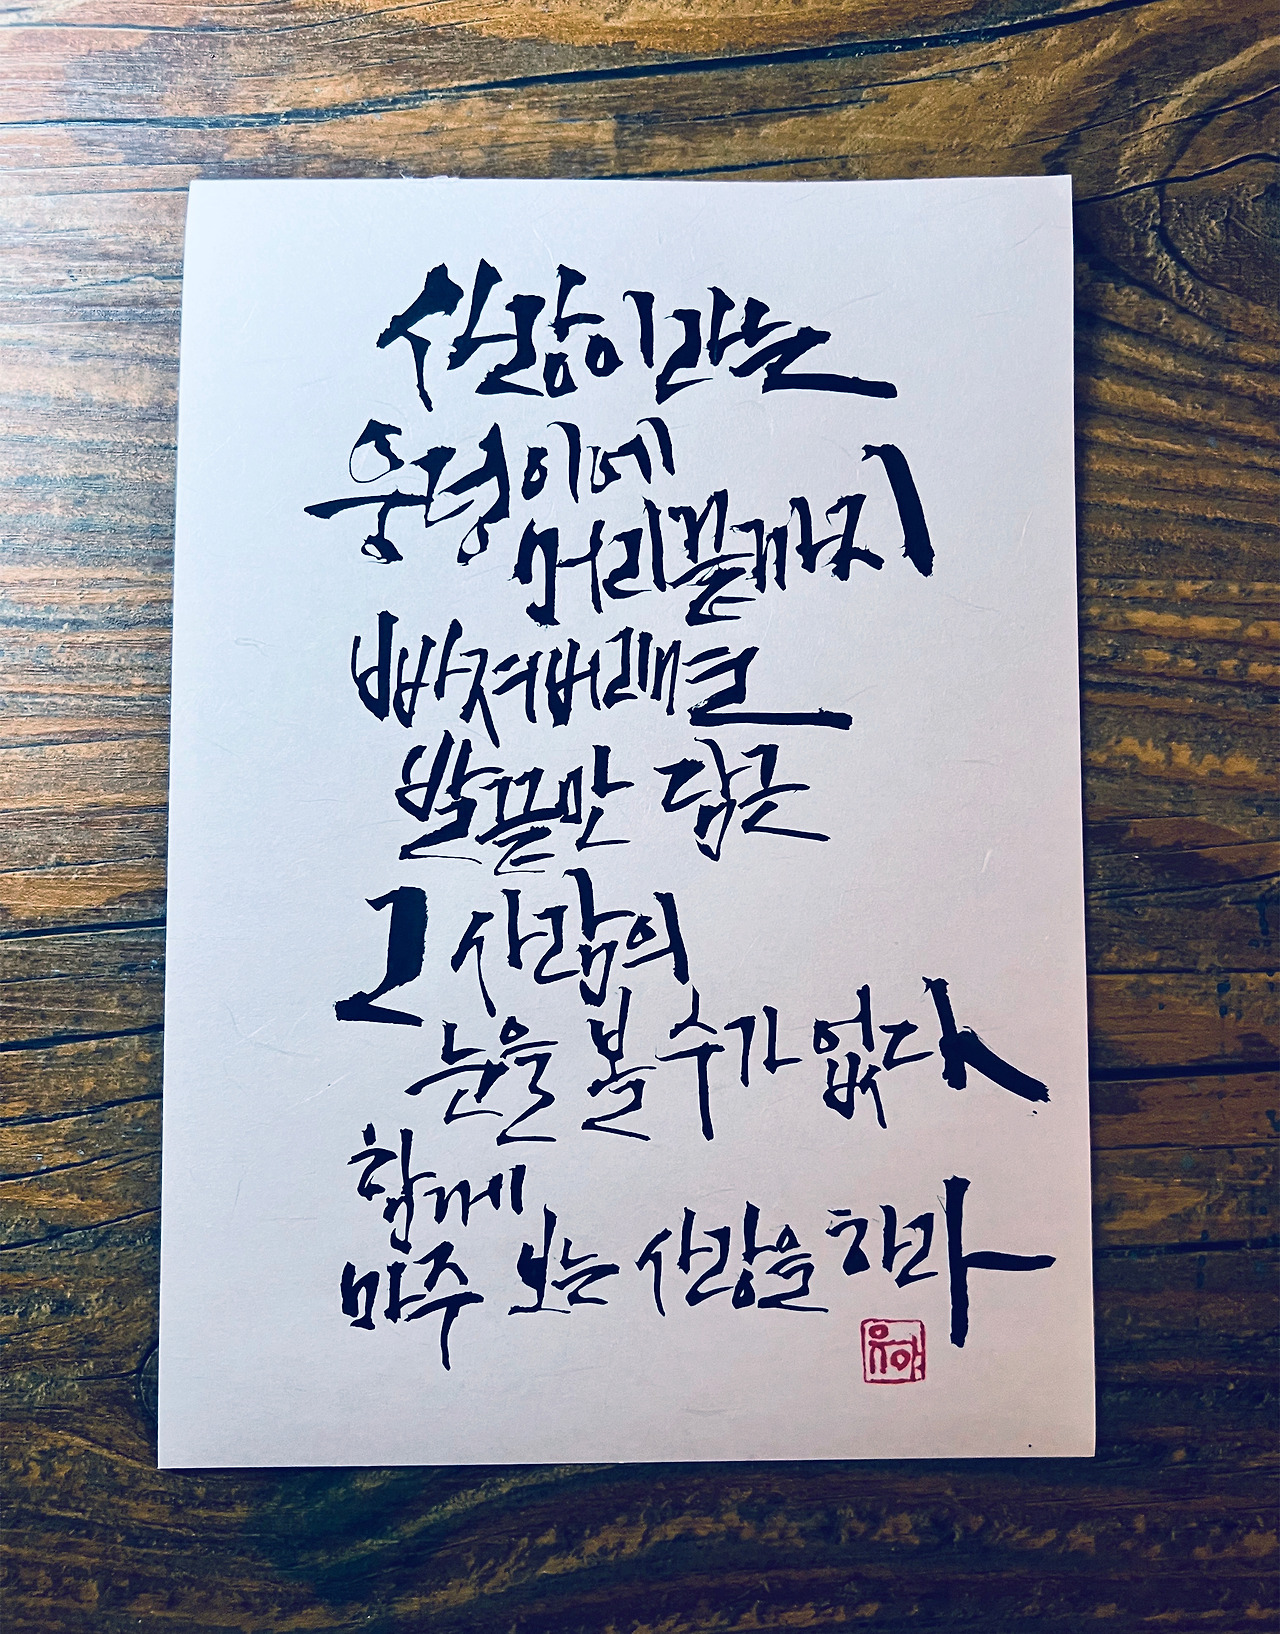 사랑이라는
웅덩이에
머리끝까지
빠져버리면
발끝만 담근
그 사람의
눈을 볼 수가 없다
함께
마주 보는 사랑을 하라
유야